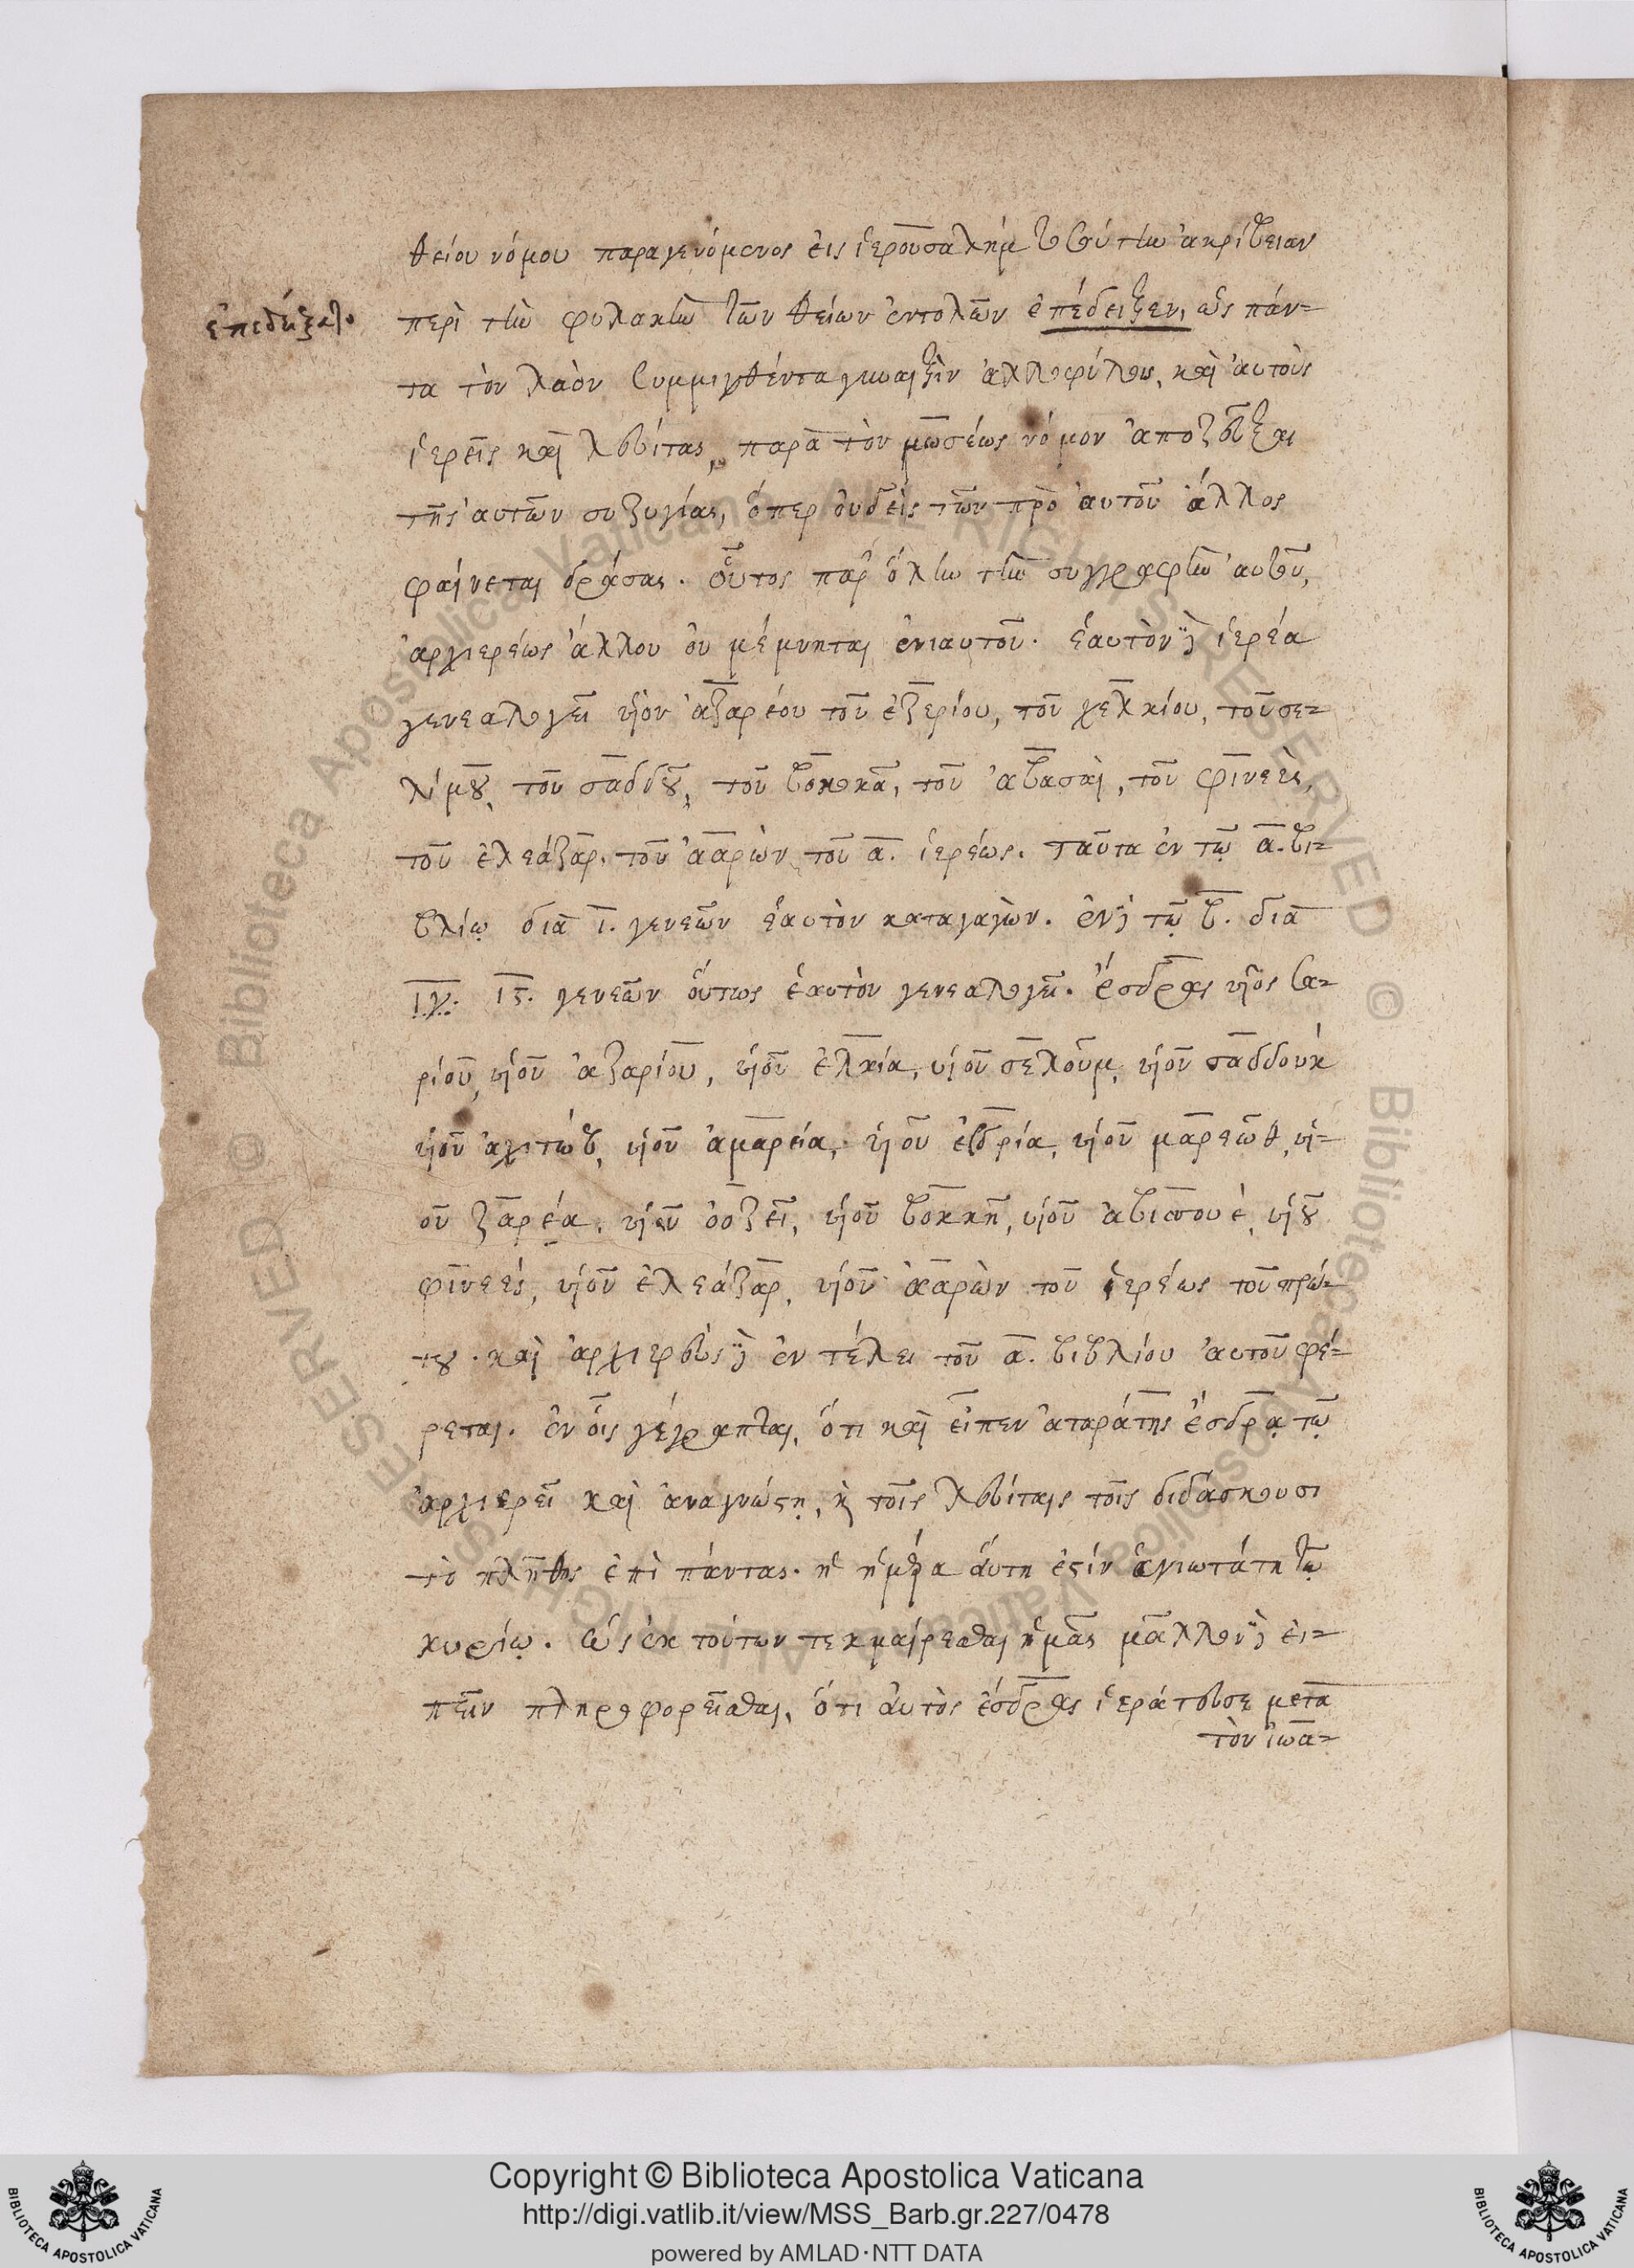 θείου νόμου παραγενόμενος εἰς ἱερουσαλὴμ τοσαύτην ἀκρίβειαν
ἐπεδείξατο
περὶ τὴν φυλακὴν τῶν θείων ἐντολῶν ἐπέδειξεν, ὡς πάν-
τα τὸν λαὸν συμμιχθέντα γυναιξὶν ἀλλοφύλοις, καὶ αὐτοὺς
ἱερεῖς καὶ λευίτας, παρὰ τὸν μωσέως νόμον ἀποζεῦξαι
τῆς αὐτῶν συζυγίας, ὅπερ οὐδεὶς τῶν πρὸ αὐτοῦ ἄλλος
φαίνεται δράσας. οὗτος παρ' ὅλην τὴν συγγραφὴν αὐτοῦ,
ἀρχιερέως ἄλλου οὐ μέμνηται ἐνιαυτοῦ. ἑαυτὸν δὲ ἱερέα
γενεαλογεῖ υἱὸν ἀζαρέου τοῦ ἐζερίου, τοῦ χελκίου, τοῦ σε-
λίμου, τοῦ σαδδού, τοῦ βοκκὰ, τοῦ ἀβασαὶ, τοῦ φινεὲς,
τοῦ ἐλεάζαρ. τοῦ ἀαρὼν τοῦ α. ἱερέως. ταῦτα ἐν τῷ α. βι-
βλίῳ διὰ ι. γενεῶν ἑαυτὸν καταγαγὼν. ἐν δὲ τῷ β. διὰ
ιχ. ις. γενεῶν οὕτως ἑαυτὸν γενεαλογεῖ. ἔσδρας υἱὸς σα-
ρίου, υἱοῦ ἀζαρίου, υἱοῦ ἐλκία, υἱοῦ σελοὺμ, υἱοῦ σαδδοὺκ
υἱοῦ ἀχιτώβ, υἱοῦ ἀμαρεία, υἱοῦ ἐζδρία, υἱοῦ μαρεὼθ, υἱ-
οῦ ζαρέα, υἱοῦ ὀζζεῖ, υἱοῦ βοκκῆ, υἱοῦ ἀβισουὲ, υἱοῦ
φινεὲς, υἱοῦ ἐλεάζαρ, υἱοῦ ἀαρὼν τοῦ ἱερέως τοῦ πρώ-
του. καὶ ἀρχιερεὺς δὲ ἐν τέλει τοῦ α. βιβλίου αὐτοῦ φέ-
ρεται. ἐν οἷς γέγραπται, ὅτι καὶ εἶπεν ἀταράτης ἔσδρᾳ τῷ
ἀρχιερεῖ καὶ ἀναγνώστῃ, καὶ τοῖς λευίταις τοῖς διδάσκουσι
τὸ πλῆθος ἐπὶ πάντας. ἡ ἡμέρα αὕτη ἐστίν ἁγιωτάτη τῷ
κυρίῳ. ὡς ἐκ τούτων τεκμαίρεσθαι ἡμᾶς μᾶλλον δὲ εἰ-
πεῖν πληροφορεῖσθαι, ὅτι αὐτὸς ἔσδρας ἱεράτευσε μετὰ
τὸν ἰωα-
Copyright © Biblioteca Apostolica Vaticana
http://digi.vatlib.it/view/MSS_Barb.gr.227/0478
powered by AMLAD·NTT DATA